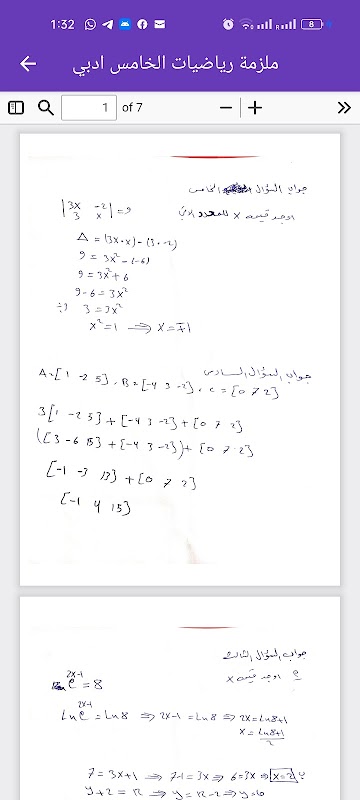 1:32
8
ملزمة رياضيات الخامس ادبي
1 of 7
جواب السؤال الخامس
اوجد قيمة x للمحدد الاتي
|3x -2| = 9
|3 x|
Δ = (3x·x) - (3·-2)
9 = 3x² - (-6)
9 = 3x² + 6
9 - 6 = 3x²
3 = 3x² ÷3
x² = 1 ⟹ x = ∓1
جواب السؤال السادس
A = [1 -2 5] , B = [-4 3 -2] , c = [0 7 2]
3[1 -2 5] + [-4 3 -2] + [0 7 2]
([3 -6 15] + [-4 3 -2]) + [0 7 2]
[-1 -3 13] + [0 7 2]
[-1 4 15]
جواب السؤال الثالث
اوجد قيمة x
e^(2x-1) = 8
Ln e^(2x-1) = Ln 8 ⟹ 2x-1 = Ln 8 ⟹ 2x = Ln 8 + 1
x = (Ln 8 + 1)/2
7 = 3x+1 ⟹ 7-1 = 3x ⟹ 6 = 3x ⟹ x = 2
y+2 = 12 ⟹ y = 12-2 ⟹ y = 10